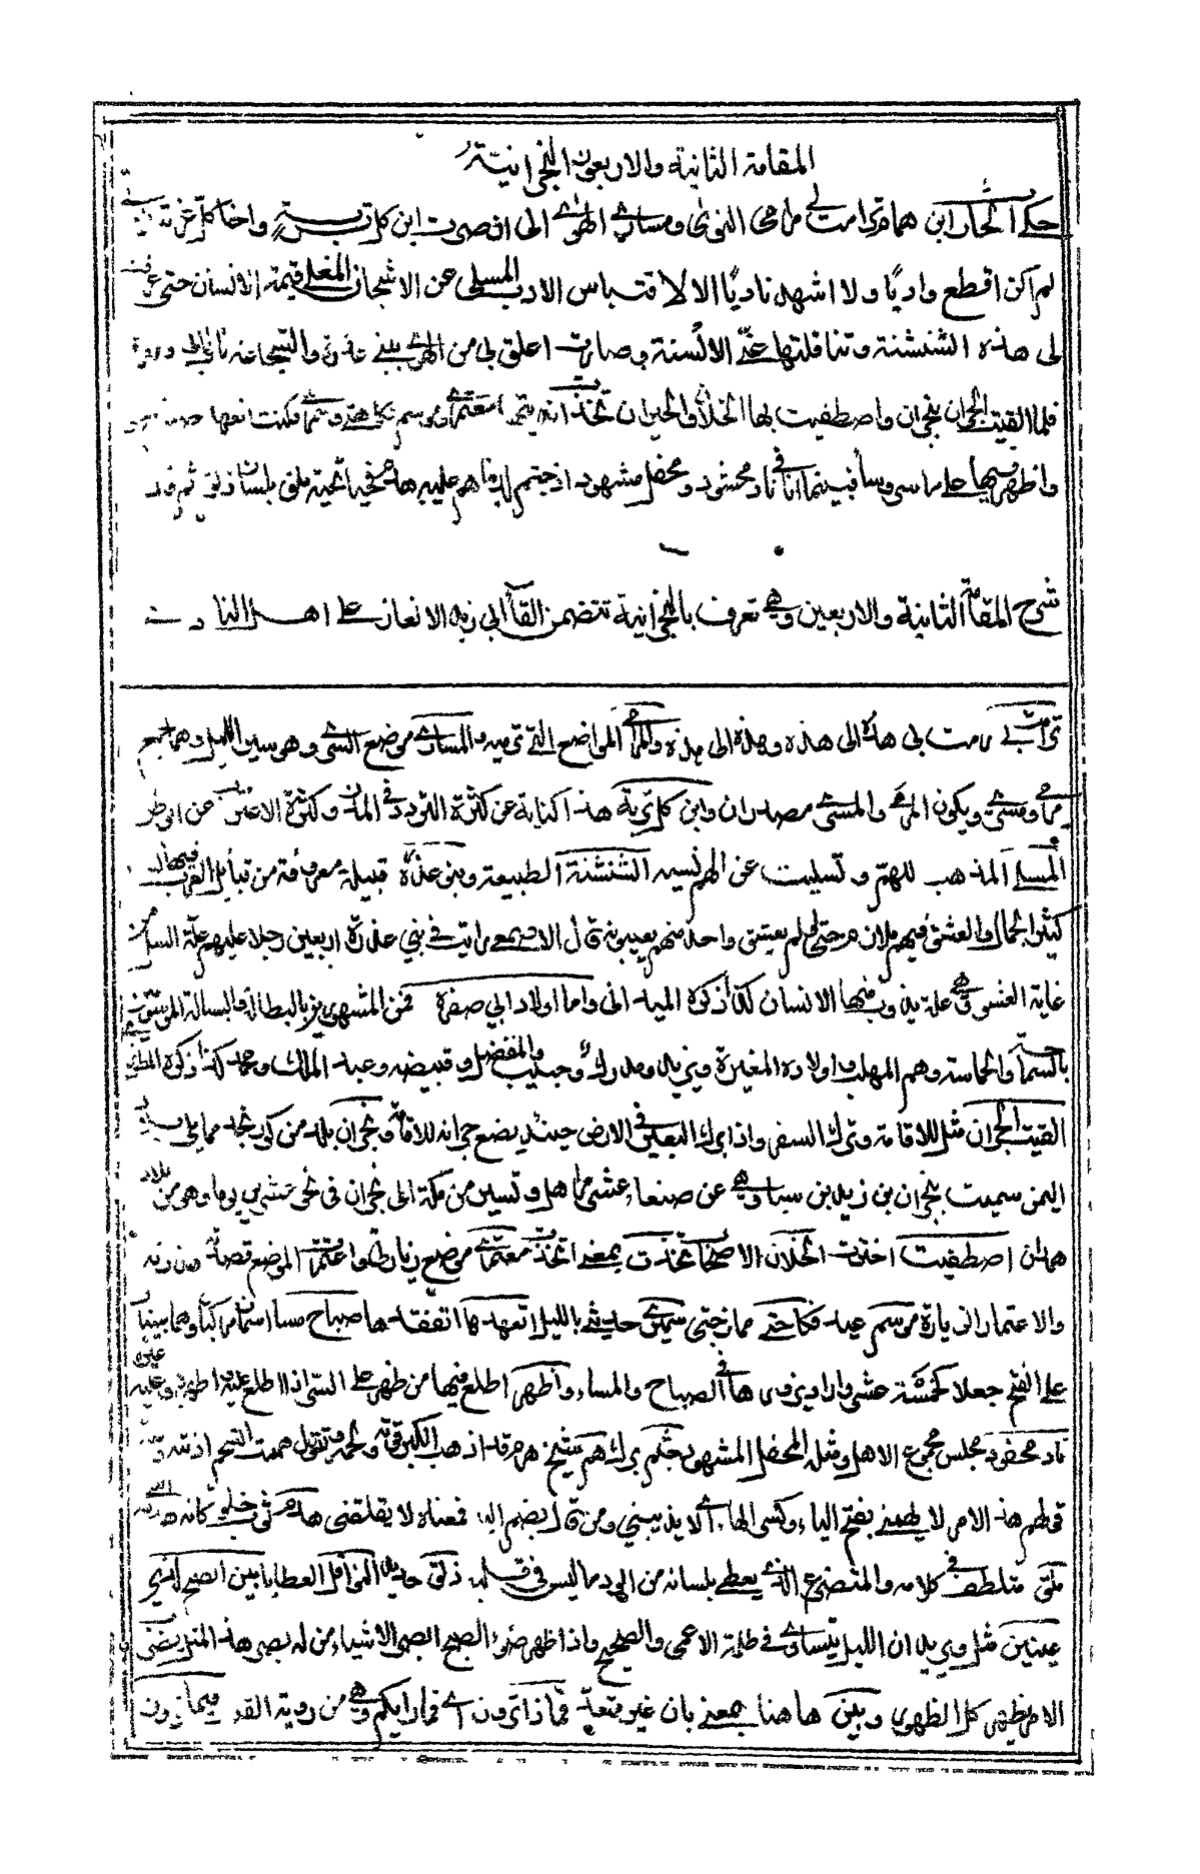 المقامة الثانية والاربعون النجرانية
حكى الحارث ابن همام ترامت بي مرامى النوى ومسارى الهوى الى ان صرت ابن كل تربة واخا كل غربة
لم اكن اقطع واديًا ولا اشهد ناديًا الا لاقتباس الادب المسلى عن الاشجان المغلى قيمة الانسان حتى عرفت
لى هذه الشنشنة وتناقلتها عنّى الالسنة وصارت اعلق بى من الهوى ببنى عذرة والشجاعة بآل ابى صفرة
فلما القيت الجران بنجران واصطفيت بها الخلان والجيران تخذت انديتها معتمرى وموسم فكاهتى وسمرى فكنت اتعهدها
واظهر فيها على ما سر وسا فبينما انا فى ناد محشود ومحفل مشهود اذ جثم لدينا هم عليه هدم فحيا تحية ملق بلسان ذلق ثم
شرح المقامة الثانية والاربعين وهى تعرف بالنجرانية تتضمن القاء ابى زيد الالغاز على اهل النا
ترامت بي رمت بى هذه الى هذه وهذه الى هذه والمرامى المواضع التى ترميه والمسارى موضع السرى وهو سير الليل وهما جمع
مرمى ومسرى ويكون المرمى والمسرى مصدران وابن كل تربة هذا كناية عن كثرة التردد فى المدن وكثرة الاغتراب عن الوطن
المسلى المذهب للهم وتسليت عن الهم نسيه الشنشنة الطبيعة وبنى عذرة قبيلة معروفة من قبائل العرب فيها
كثير الجمال والعشق فيهم ملازم حتى لم يعشق واحد منهم يعيبونه قال الاصمعى رايت فى بنى عذرة اربعين رجلا عليهم علة السل من
غاية العشق وهى علة يذوب منها الانسان كذا ذكره الميدانى واما اولاد ابي صفرة فمن المشهورين بالبطالة والبسالة
بالسماحة والحماسة وهم المهلب واولاده المغيرة ويزيد ومدرك وحبيب والمفضل وقبيصة وعبد الملك ومحمد كذا ذكره المطرزى
القيت الجران مثل للاقامة وترك السفر واذا برك البعير فى الارض حينئذ يضع جرانه للاقامة ونجران بلد من كور نجد مما يلى
اليمن سميت بنجران بن زيد بن سبا وهى عن صنعاء عشر مراحل وتسير من مكة الى نجران فى نحو عشرين يوما وهو من بلاد
همدان اصطفيت اخترت الخلان الاصحاب تخذت بمعنى اتخذت معتمرى موضع زيارتى واعتمر الموضع قصده
والاعتمار الزيارة موسم عيد فكاهتى ممازحتى سمرى حديثى بالليل اتعهدها اتفقدها صباح مسا اسمان مركبا وهما بنيا
على الفتح جعلا كخمسة عشر واراد يزورها فى الصباح والمساء واظهر اطلع فيها من ظهر على السر اذا اطلع عليه
ناد محشود مجلس مجموع الاهل ومثله المحفل المشهود جثم برك هم شيخ هرم قد اذهب الكبر قوته ولحمه وتقول هممت الشحم اذبته
قولهم هذا الامر لا يهمنى بفتح الياء وكسر الهاء اى لا يذيبنى ومن قال بضم الياء فمعناه لا يقلقنى هدم ثوب خلق كانه
ملق متلطف فى كلامه والمتضرع الذى يعطى بلسانه من الود ما ليس فى قلبه ذلق حديد النوافل العطايا بين الصبح لذى
عينين مثل ويريد ان الليل يتساوى فى ظلمته الاعمى والصحيح واذا ظهر ضوء الصبح ابصر الاشياء من له بصر هذا المثل يضرب
الامر يظهر كل الظهور وبين هاهنا بمعنى بان غير متعد فماذا ترون اى فما رايكم وهى من روية القلب فيما